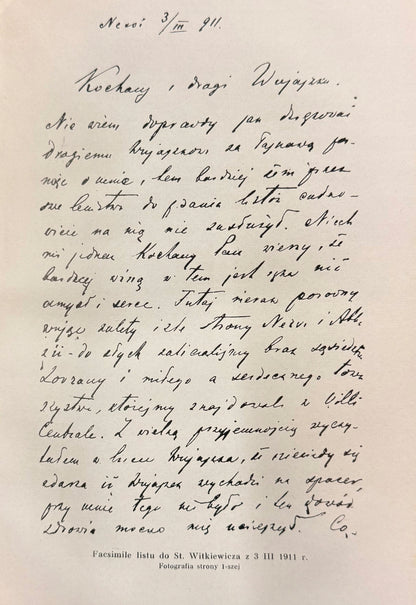 Nervi 3/III 911.
Kochany i drogi Wujaszku.
Nie wiem doprawdy jak dziękować
drogiemu Wujaszkowi za łaskawą pa-
mięć o mnie, tem bardziej żem przez
swe lenistwo do pisania listów cudno-
wicie na nią nie zasłużył. Niech
mi jednak Kochany Pan wierzy, że
bardziej winą w tem jest ręka niż
umysł i serce. Tutaj nieraz porówny
wając zalety i złe strony Nervi i Abb
zii - do złych zaliczaliśmy brak sąsiedztwa
Lovrany i miłego a serdecznego towa
rzystwa, któreśmy znajdowali w Villi
Centrale. Z wielką przyjemnością wyczy-
tałem w liście Wujaszka, że niekiedy się
zdarza iż Wujaszek wychodzi na spacer,
przy mnie tego nie było i ten dowód
zdrowia mocno mię ucieszył. Co,
Facsimile listu do St. Witkiewicza z 3 III 1911 r.
Fotografia strony 1-szej